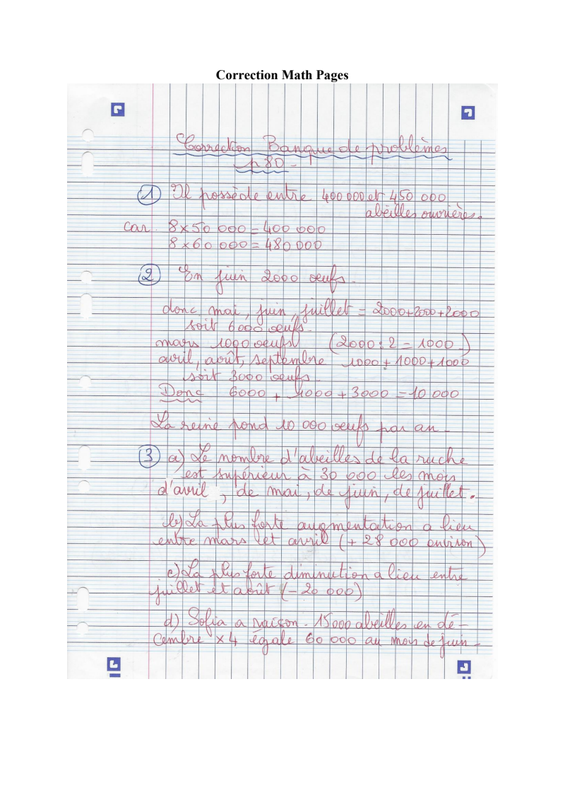 Correction Math Pages
Correction Banque de problèmes
p 80 -
1 Il possède entre 400 000 et 450 000
abeilles ouvrières.
car 8 x 50 000 = 400 000
8 x 60 000 = 480 000
2 En juin 2000 oeufs.
donc mai, juin, juillet = 2000+2000+2000
soit 6000 oeufs.
mars 1000 oeufs (2000 : 2 = 1000)
avril, août, septembre 1000 + 1000 + 1000
soit 3000 oeufs.
Donc 6000 + 1000 + 3000 = 10 000
La reine pond 10 000 oeufs par an -
3 a) Le nombre d'abeilles de la ruche
est supérieur à 30 000 les mois
d'avril, de mai, de juin, de juillet.
b) La plus forte augmentation a lieu
entre mars et avril (+ 28 000 environ)
c) La plus forte diminution a lieu entre
juillet et août (- 20 000)
d) Sofia a raison. 15000 abeilles en dé-
cembre x 4 égale 60 000 au mois de juin -